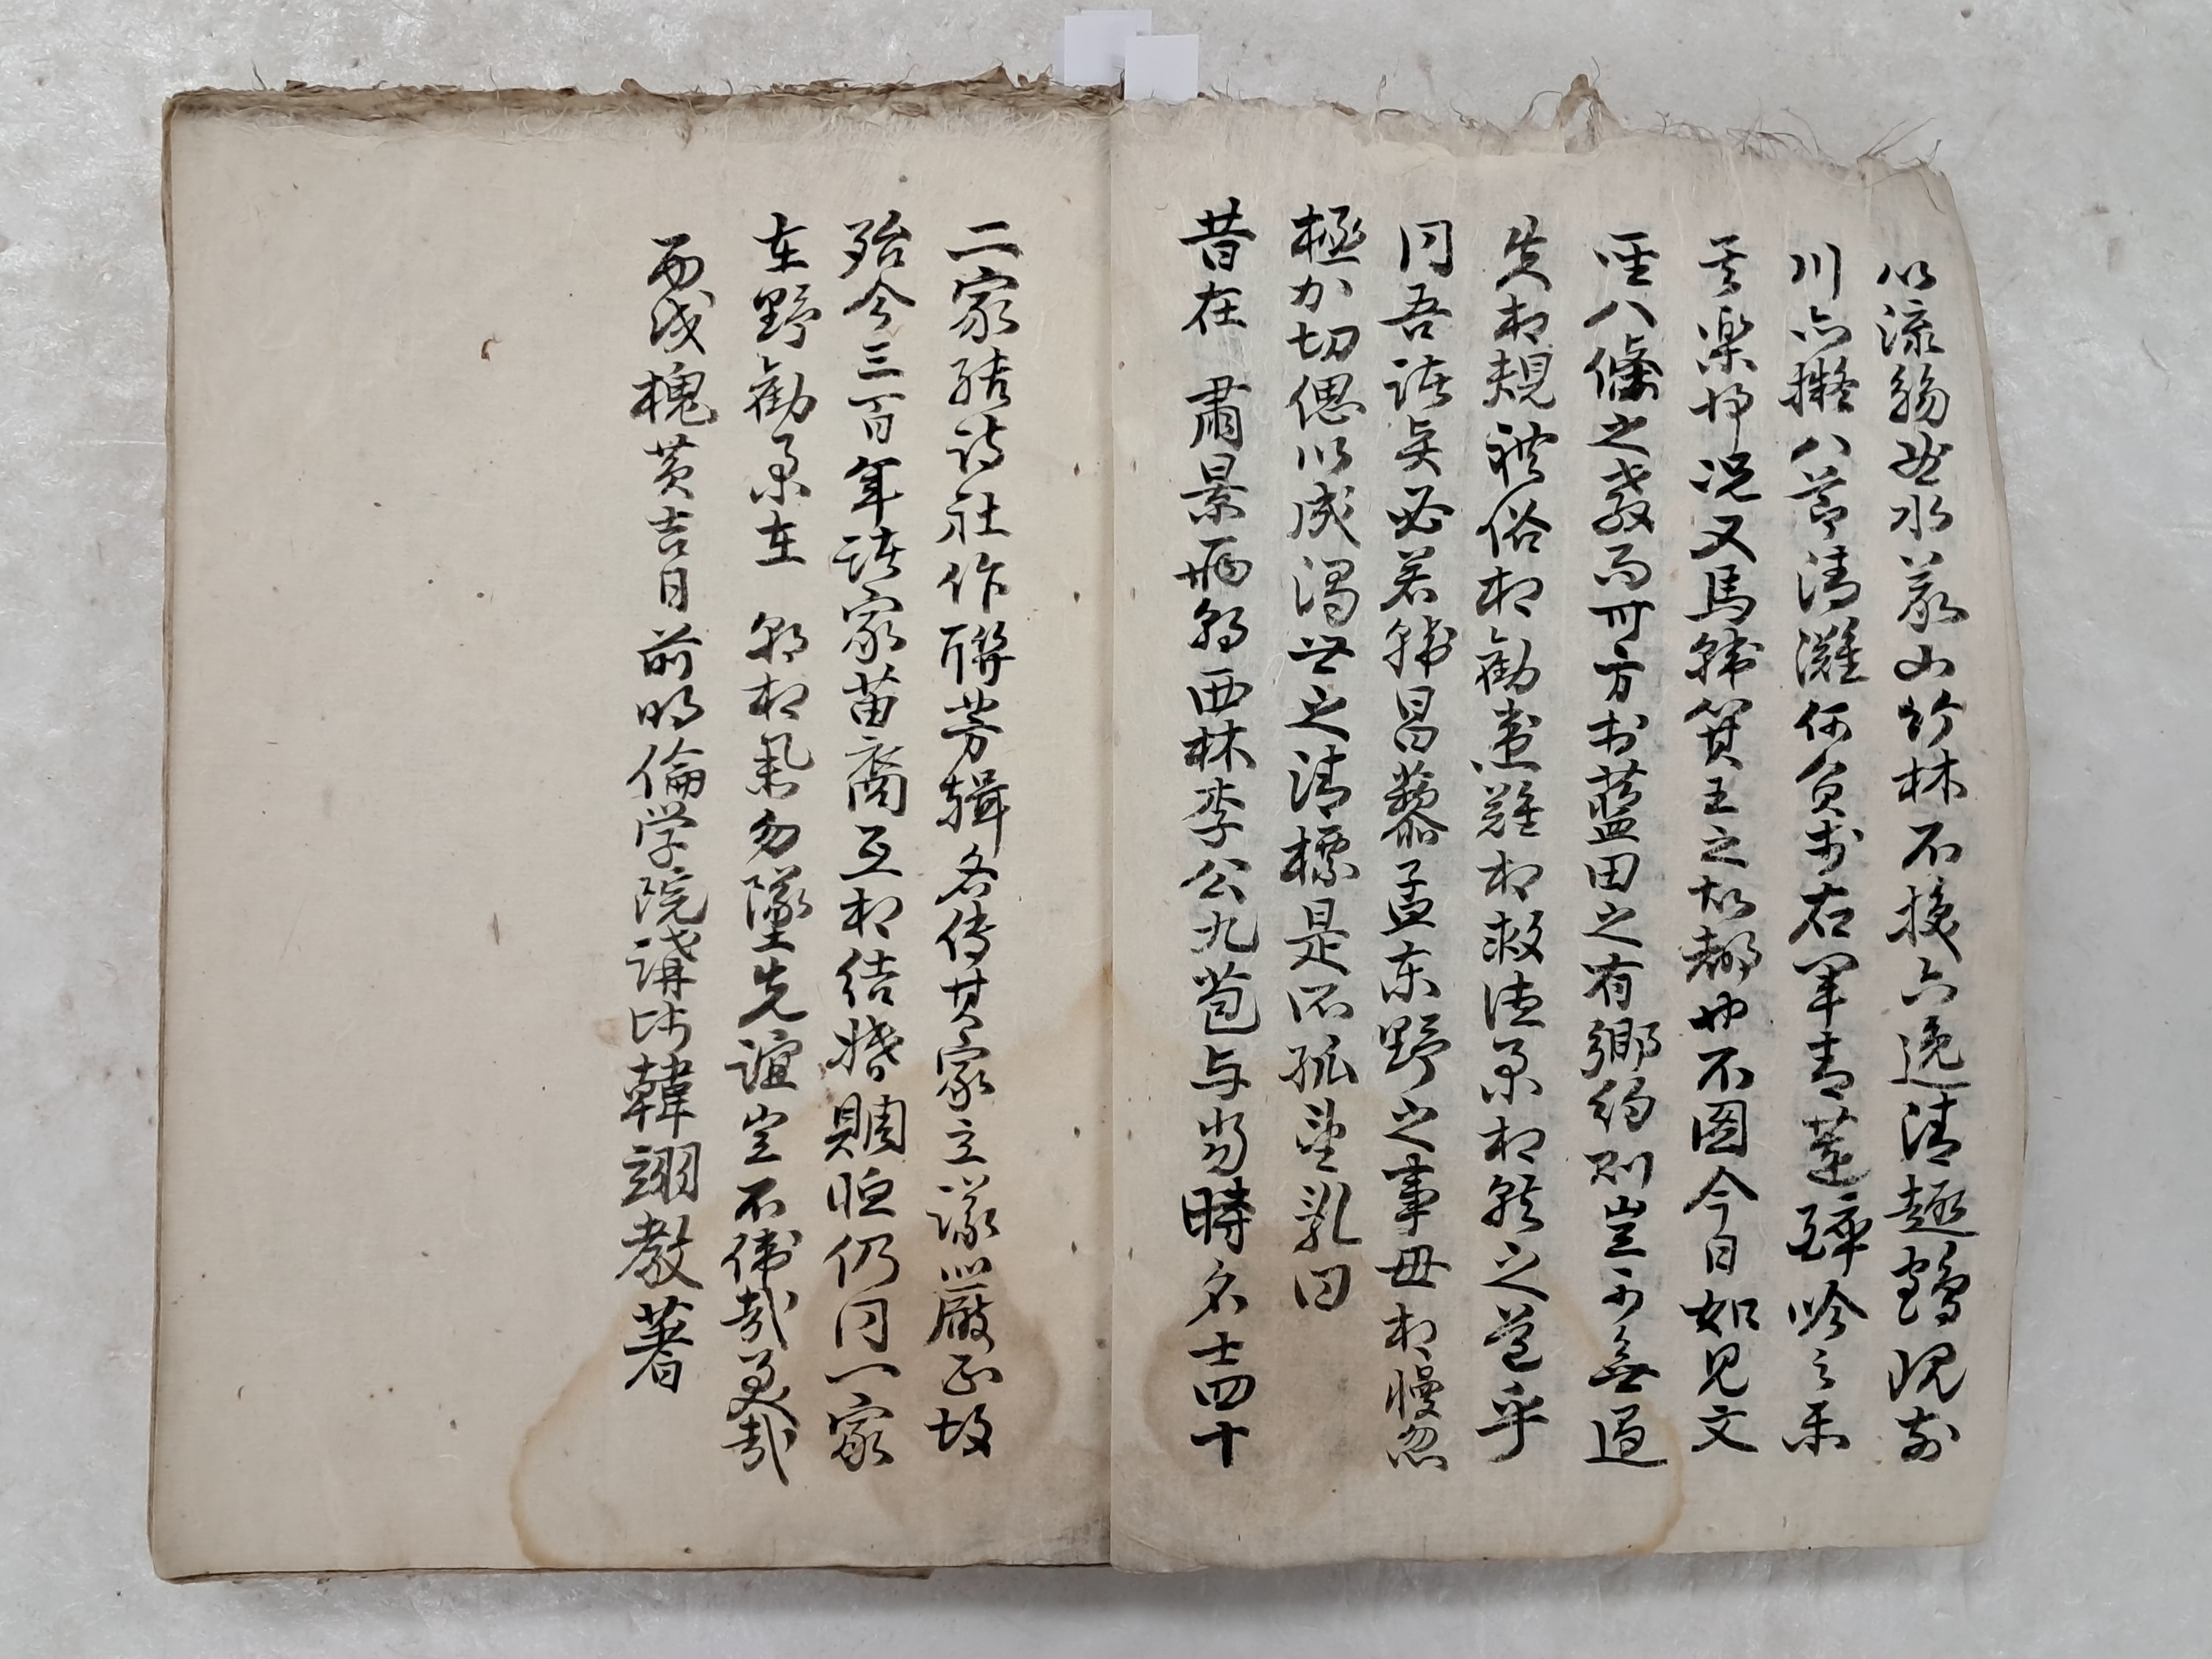 以流觴 水叢山竹林不接六逸清趣鶴 前
川亦擬八節清灘何負於右軍青蓮醉吟之樂
其樂 况又馬韓箕王之故都也不图今日如見文
聖八條之敎而 方於藍田之有鄕約則豈可無過
失相規禮俗相勸患難相救德業相 之 乎
同吾 必若韓昌藜孟东野之事毋相慢忽
極力切偲以成濁世之淸標是所孤望乱曰
昔在 肅景兩朝西林李公九苞与當時名士四十
二家結詩社作聯芳輯各傳其家立議嚴正故
殆今三百年諸家苗裔互相結 賙恤仍同一家
在野勸業在 朝相 勿墜先誼豈不偉哉美哉
丙戌槐黃吉日前明倫学院講師韓翊敎著